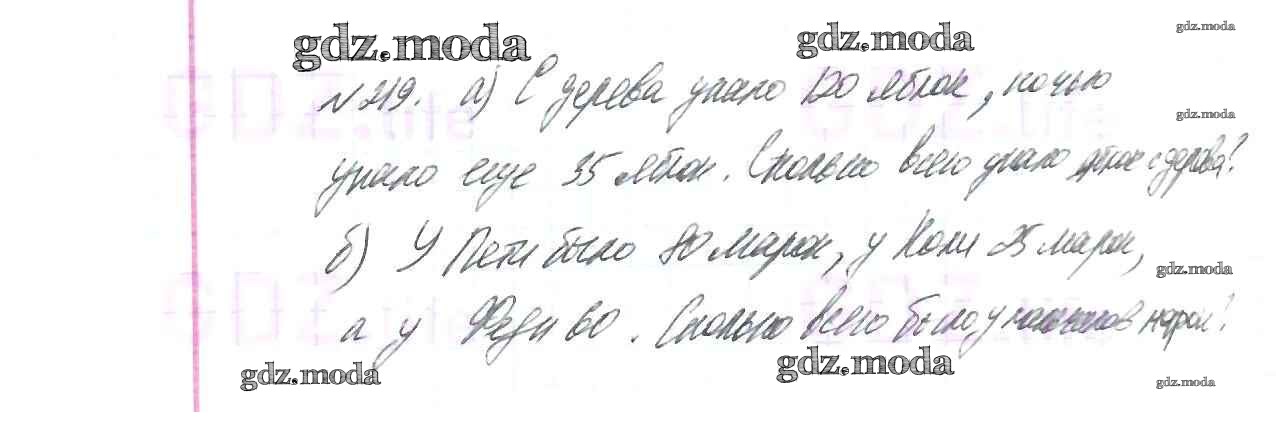 gdz.moda gdz.moda gdz.moda
№ 219. а) С дерева упало 120 яблок, ночью
gdz.moda
упало еще 35 яблок. Сколько всего упало яблок с дерева?
б) У Пети было 80 марок, у Коли 25 марок,
gdz.moda
а у Феди 60. Сколько всего было у мальчиков марок?
gdz.moda gdz.moda gdz.moda